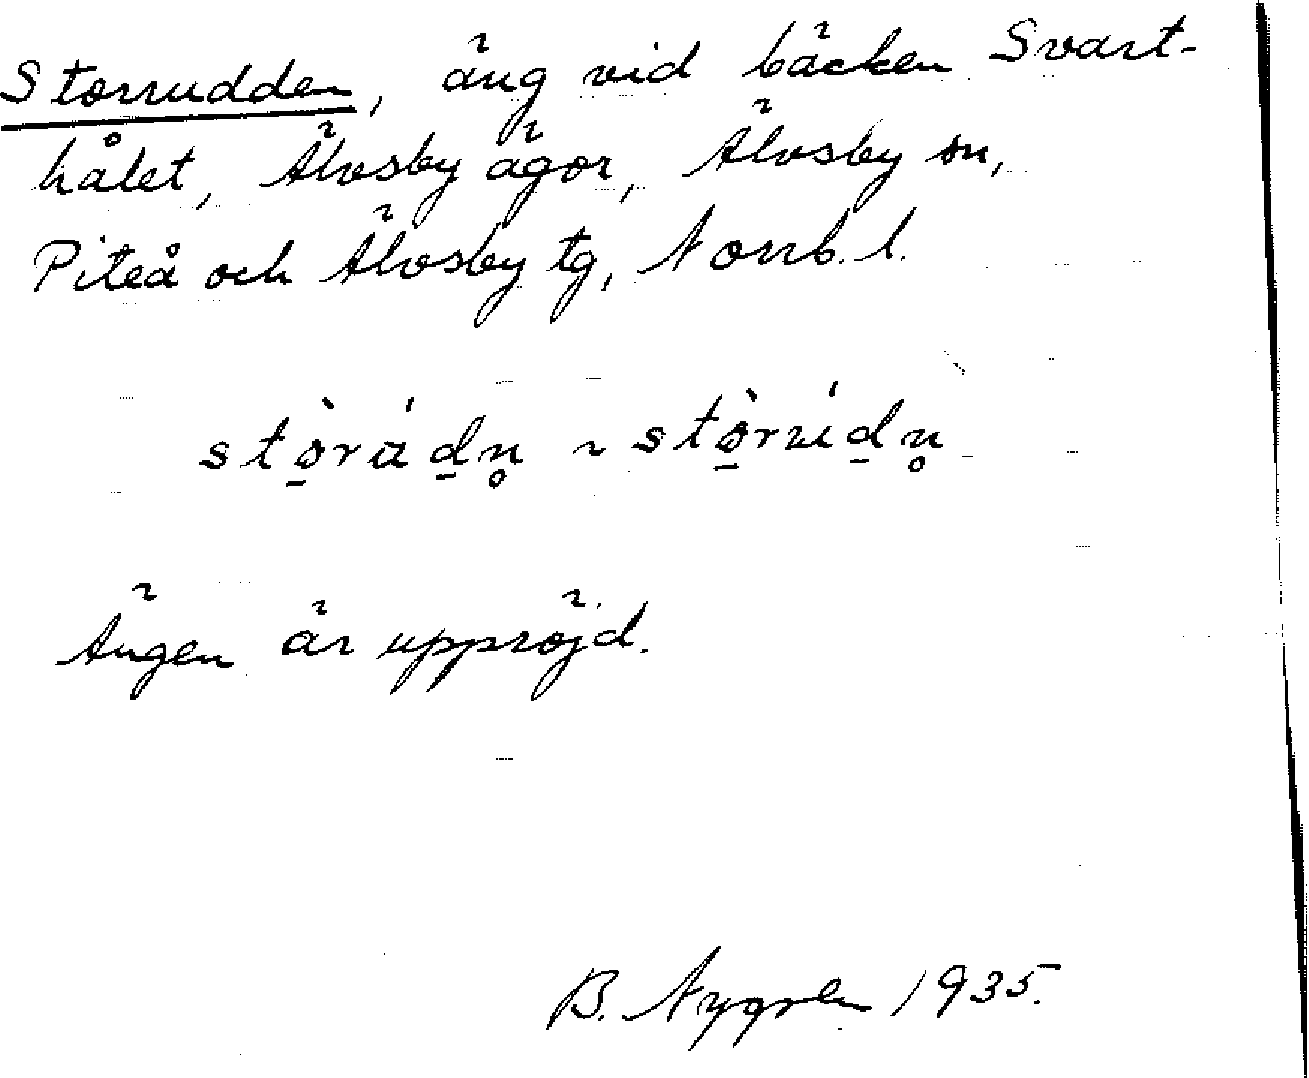 Storrudden, äng vid bäcken Svart-
hålet, Älvsby ägor, Älvsby sn,
Piteå och Älvsby tg, Norrb. l.
stò̱rádn̥ ~ stò̱rúdn̥
Ängen är uppröjd.
B. Nygren 1935.